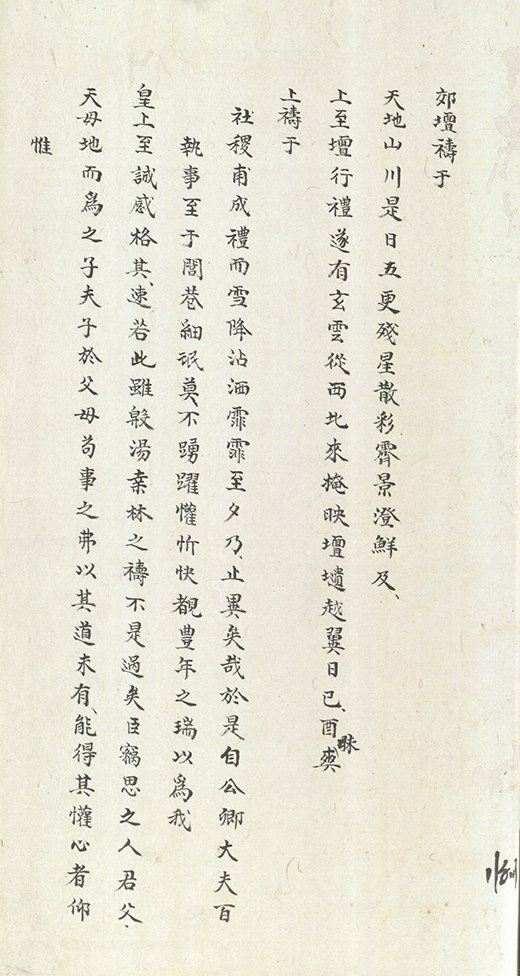 郊壇禱于
天地山川是日五更殘星散彩霽景澄鮮及
上至壇行禮遂有玄雲從西北來掩映壇壝越翼日己酉昧爽
上禱于
社稷甫成禮而雪降沾洒霏霏至夕乃止異矣哉於是自公卿大夫百
執事至于閭巷細氓莫不踴躍懽忻快覩豊年之瑞以為我
皇上至誠感格其速若此雖殷湯桒林之禱不是過矣臣竊思之人君父
天母地而為之子夫子於父母苟事之弗以其道未有能得其懽心者仰
惟